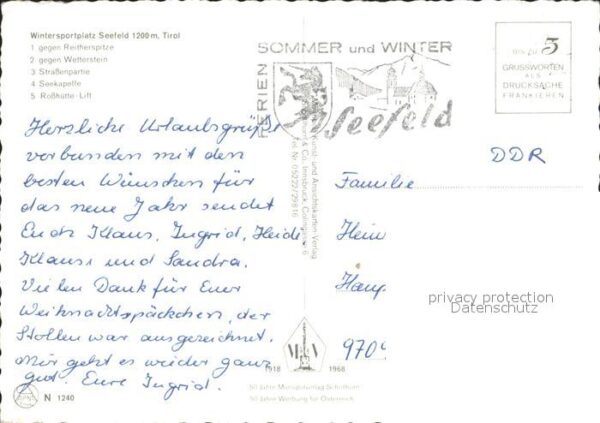 Wintersportplatz Seefeld 1200 m, Tirol
1 gegen Reitherspitze
2 gegen Wetterstein
3 Straßenpartie
4 Seekapelle
5 Roßhütte-Lift
FERIEN
SOMMER und WINTER
Seefeld
BIS ZU 5
GRUSSWORTEN
ALS
DRUCKSACHE
FRANKIEREN
Herzliche Urlaubsgrüße
verbunden mit den
besten Wünschen für
das neue Jahr sendet
Euch Klaus, Ingrid, Heidi
Klausi und Sandra.
Vielen Dank für Euer
Weihnachtspäckchen, der
Stollen war ausgezeichnet.
Mir geht es wieder ganz
gut. Eure Ingrid.
Kunst- und Ansichtskarten-Verlag
& Co., Innsbruck,
Tel. Nr. 05222/29816
DDR
Familie
Hein
privacy protection
Datenschutz
970
1918 1968
50 Jahre
50 Jahre Werbung für Österreich
N 1240